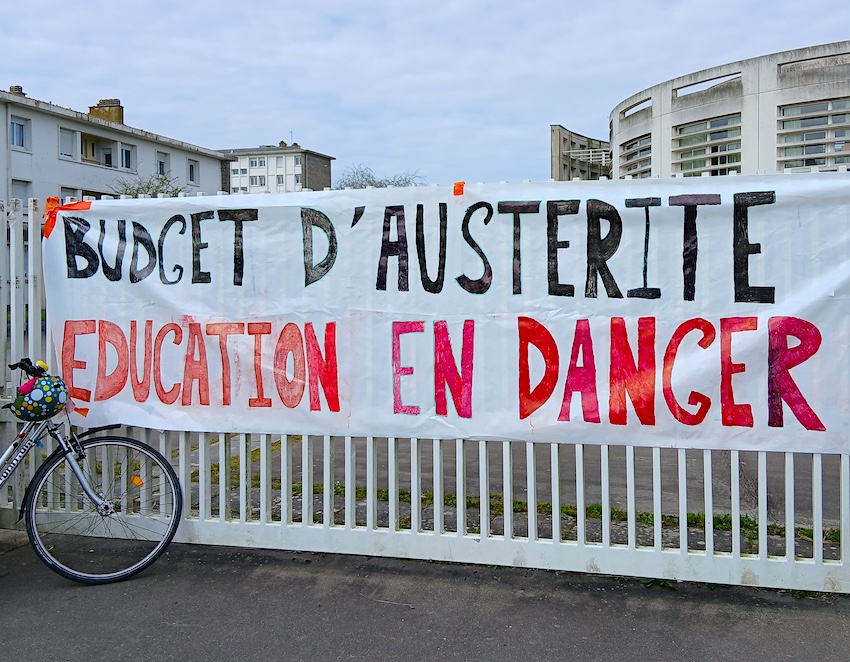 BUDGET D'AUSTERITE
EDUCATION EN DANGER